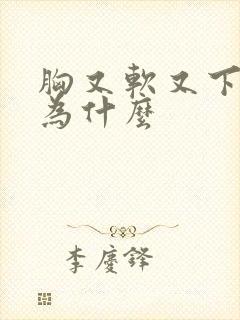 胸又軟又下
為什麼
李慶鋒